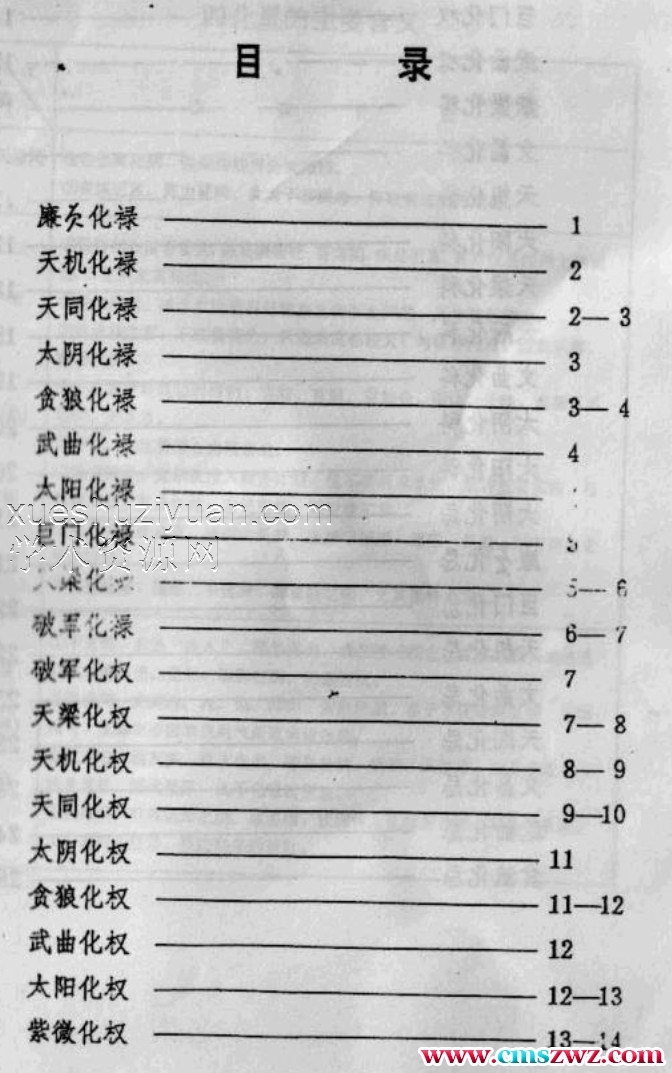 目 录
廉贞化禄 1
天机化禄 2
天同化禄 2—3
太阴化禄 3
贪狼化禄 3—4
武曲化禄 4
太阳化禄
xueshuziyuan.com
巨门化禄 5
学术资源网
梁化 5—6
破军化禄 6—7
破军化权 7
天梁化权 7—8
天机化权 8—9
天同化权 9—10
太阴化权 11
贪狼化权 11—12
武曲化权 12
太阳化权 12—13
紫微化权 13—14
www.cmszwz.com